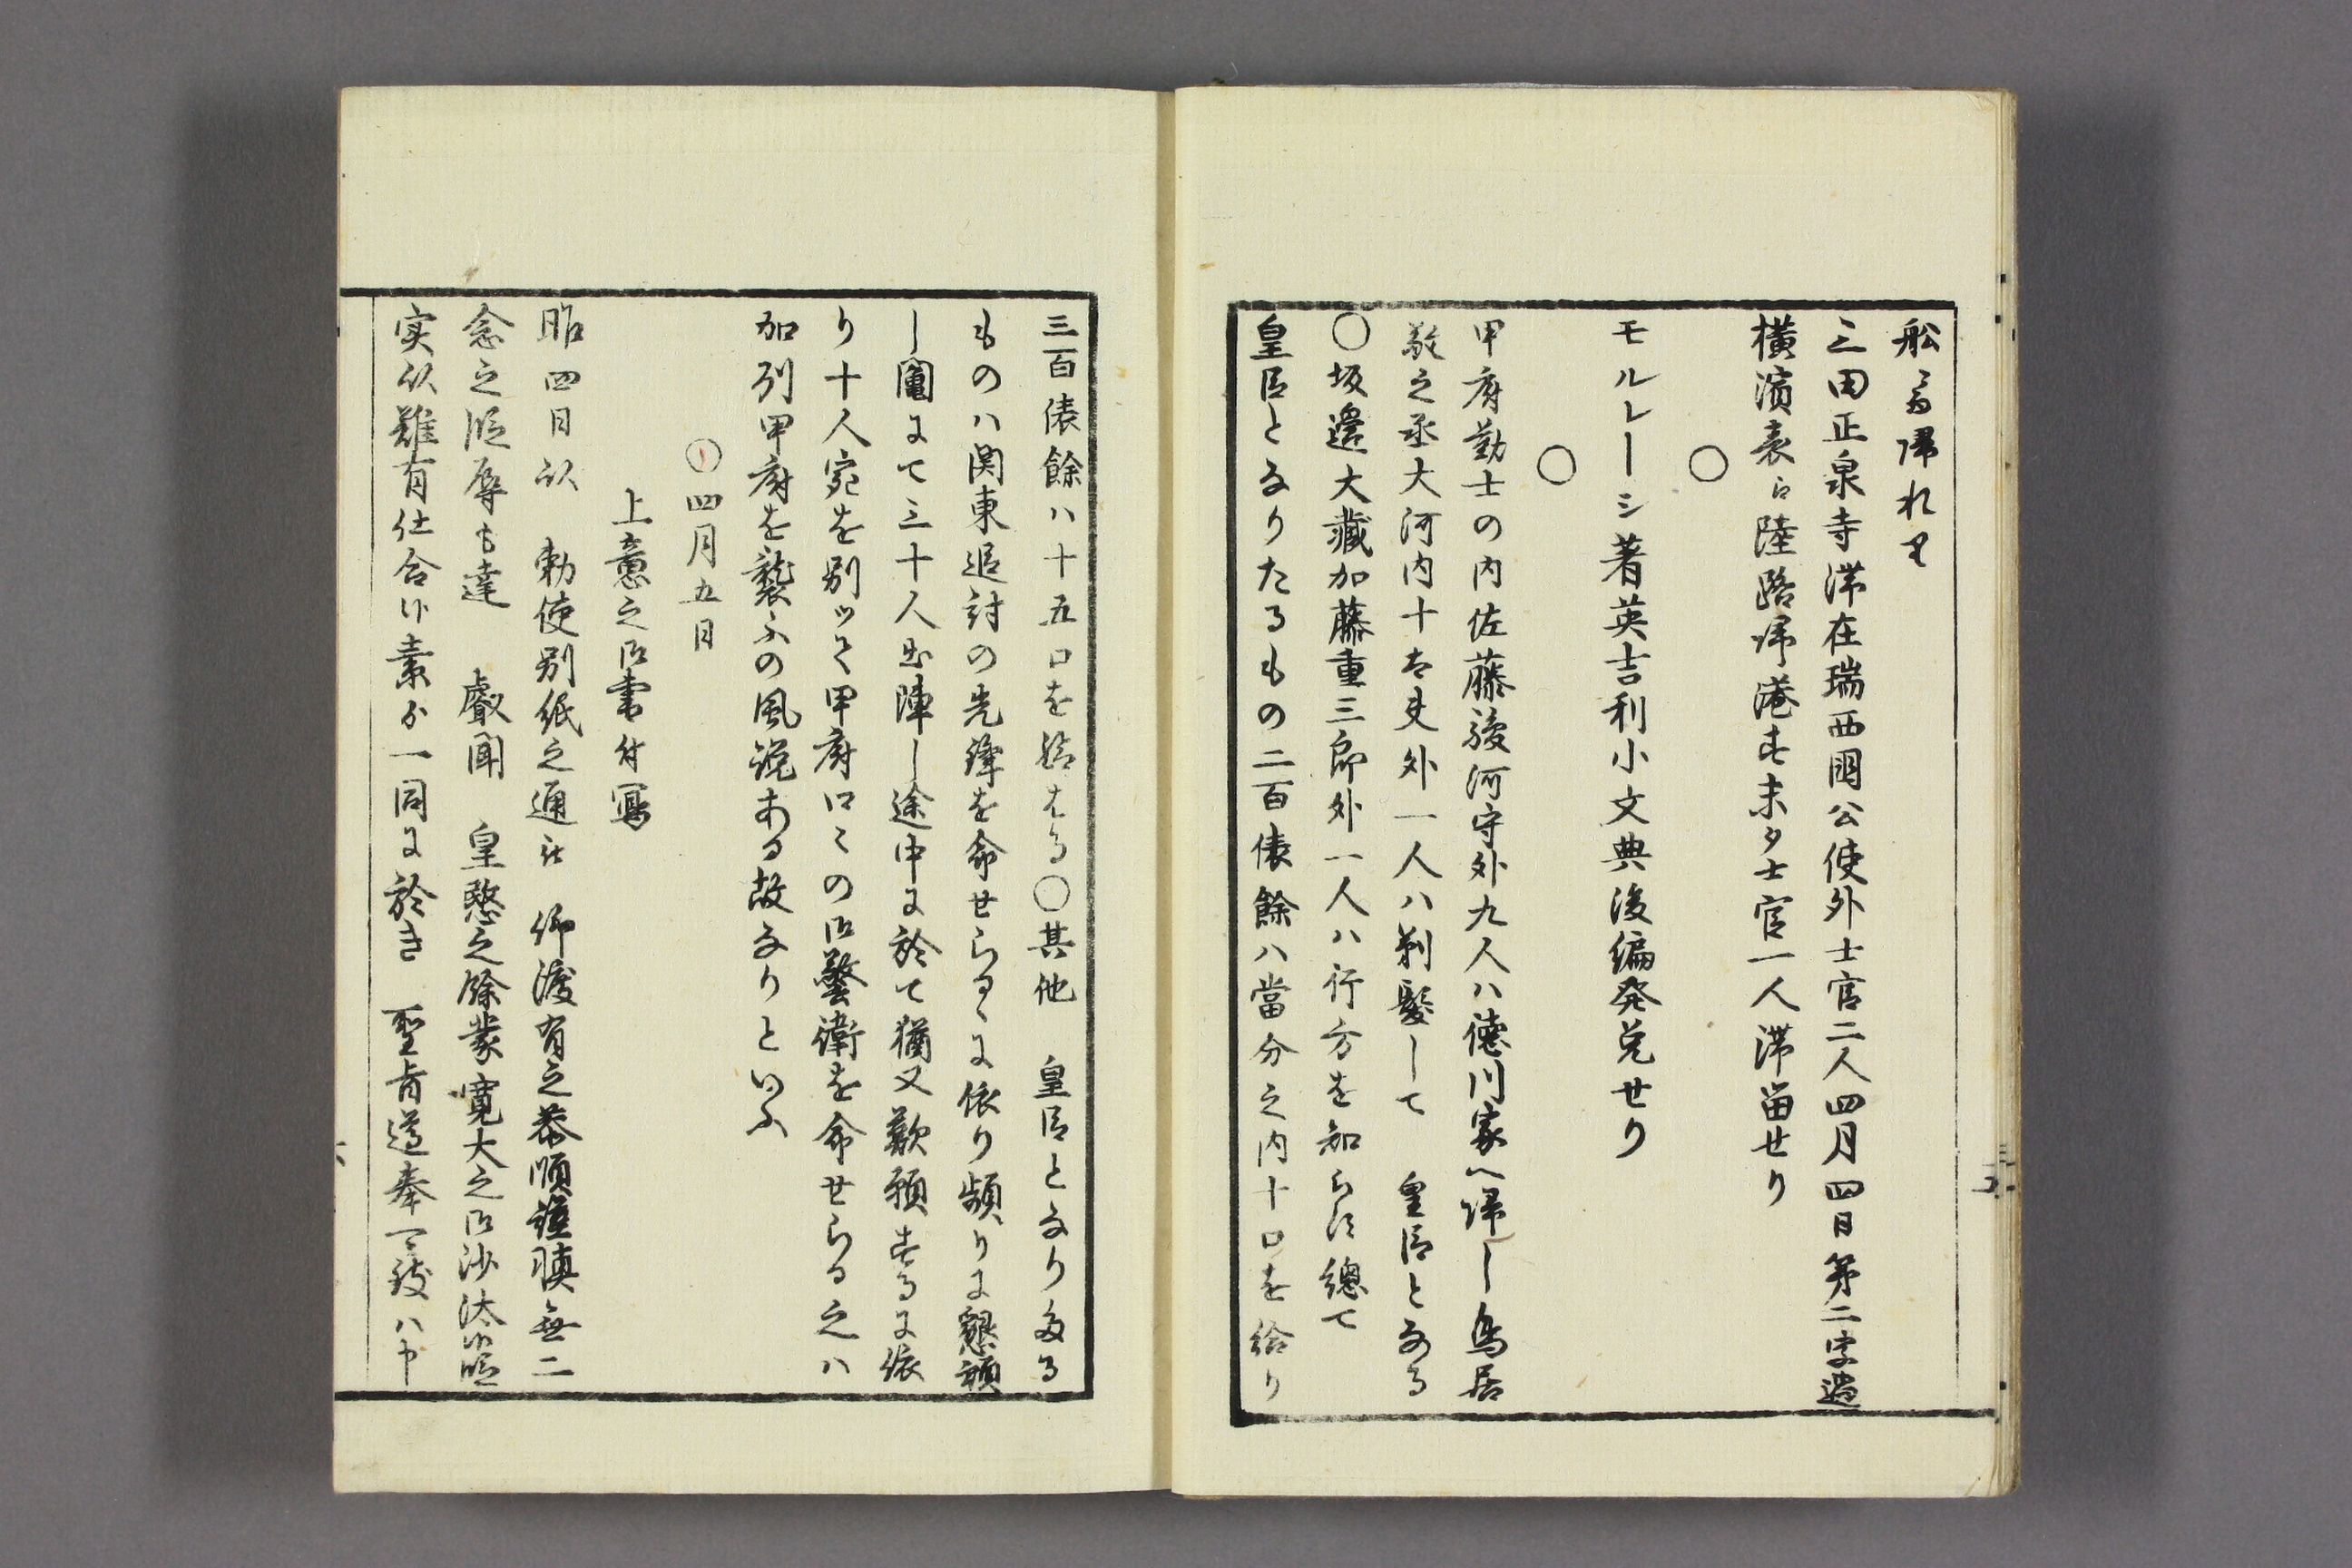 舩ゟ帰れり
三田正泉寺滞在瑞西國公使外士官二人四月四日第二字過
横濱表ゟ陸路帰港す未タ士官一人滞畄せり
○
モルレーシ著英吉利小文典後編発兌せり
○
甲府勤士の内佐藤駿河守外九人ハ徳川家へ帰し鳥居
敬之丞大河内十太夫外一人ハ剃髪して 皇臣となる
○坂邉大藏加藤重三郎外一人ハ行方を知らは総て
皇臣となりたるもの二百俵餘ハ當分之内十口を給り
三百俵餘ハ十五口を給はる○其他 皇臣となり多る
ものハ関東追討の先鋒を命せらるゝに依り頻りに懇願
し鬮にて三十人出陣し途中に於て猶又歎願するに依
り十人宛を別ツて甲府口々の御警衛を命せらる之ハ
加列甲府を襲ふの風説ある故なりといふ
○四月五日
上意之御書付写
昨四日以 勅使別紙之通被 仰渡有之恭順謹慎無二
念之段辱も達 叡聞 皇愍之餘蒙寛大之御沙汰候段
実以難有仕合ニ付素ゟ一同に於き 聖旨遵奉一致ハ申